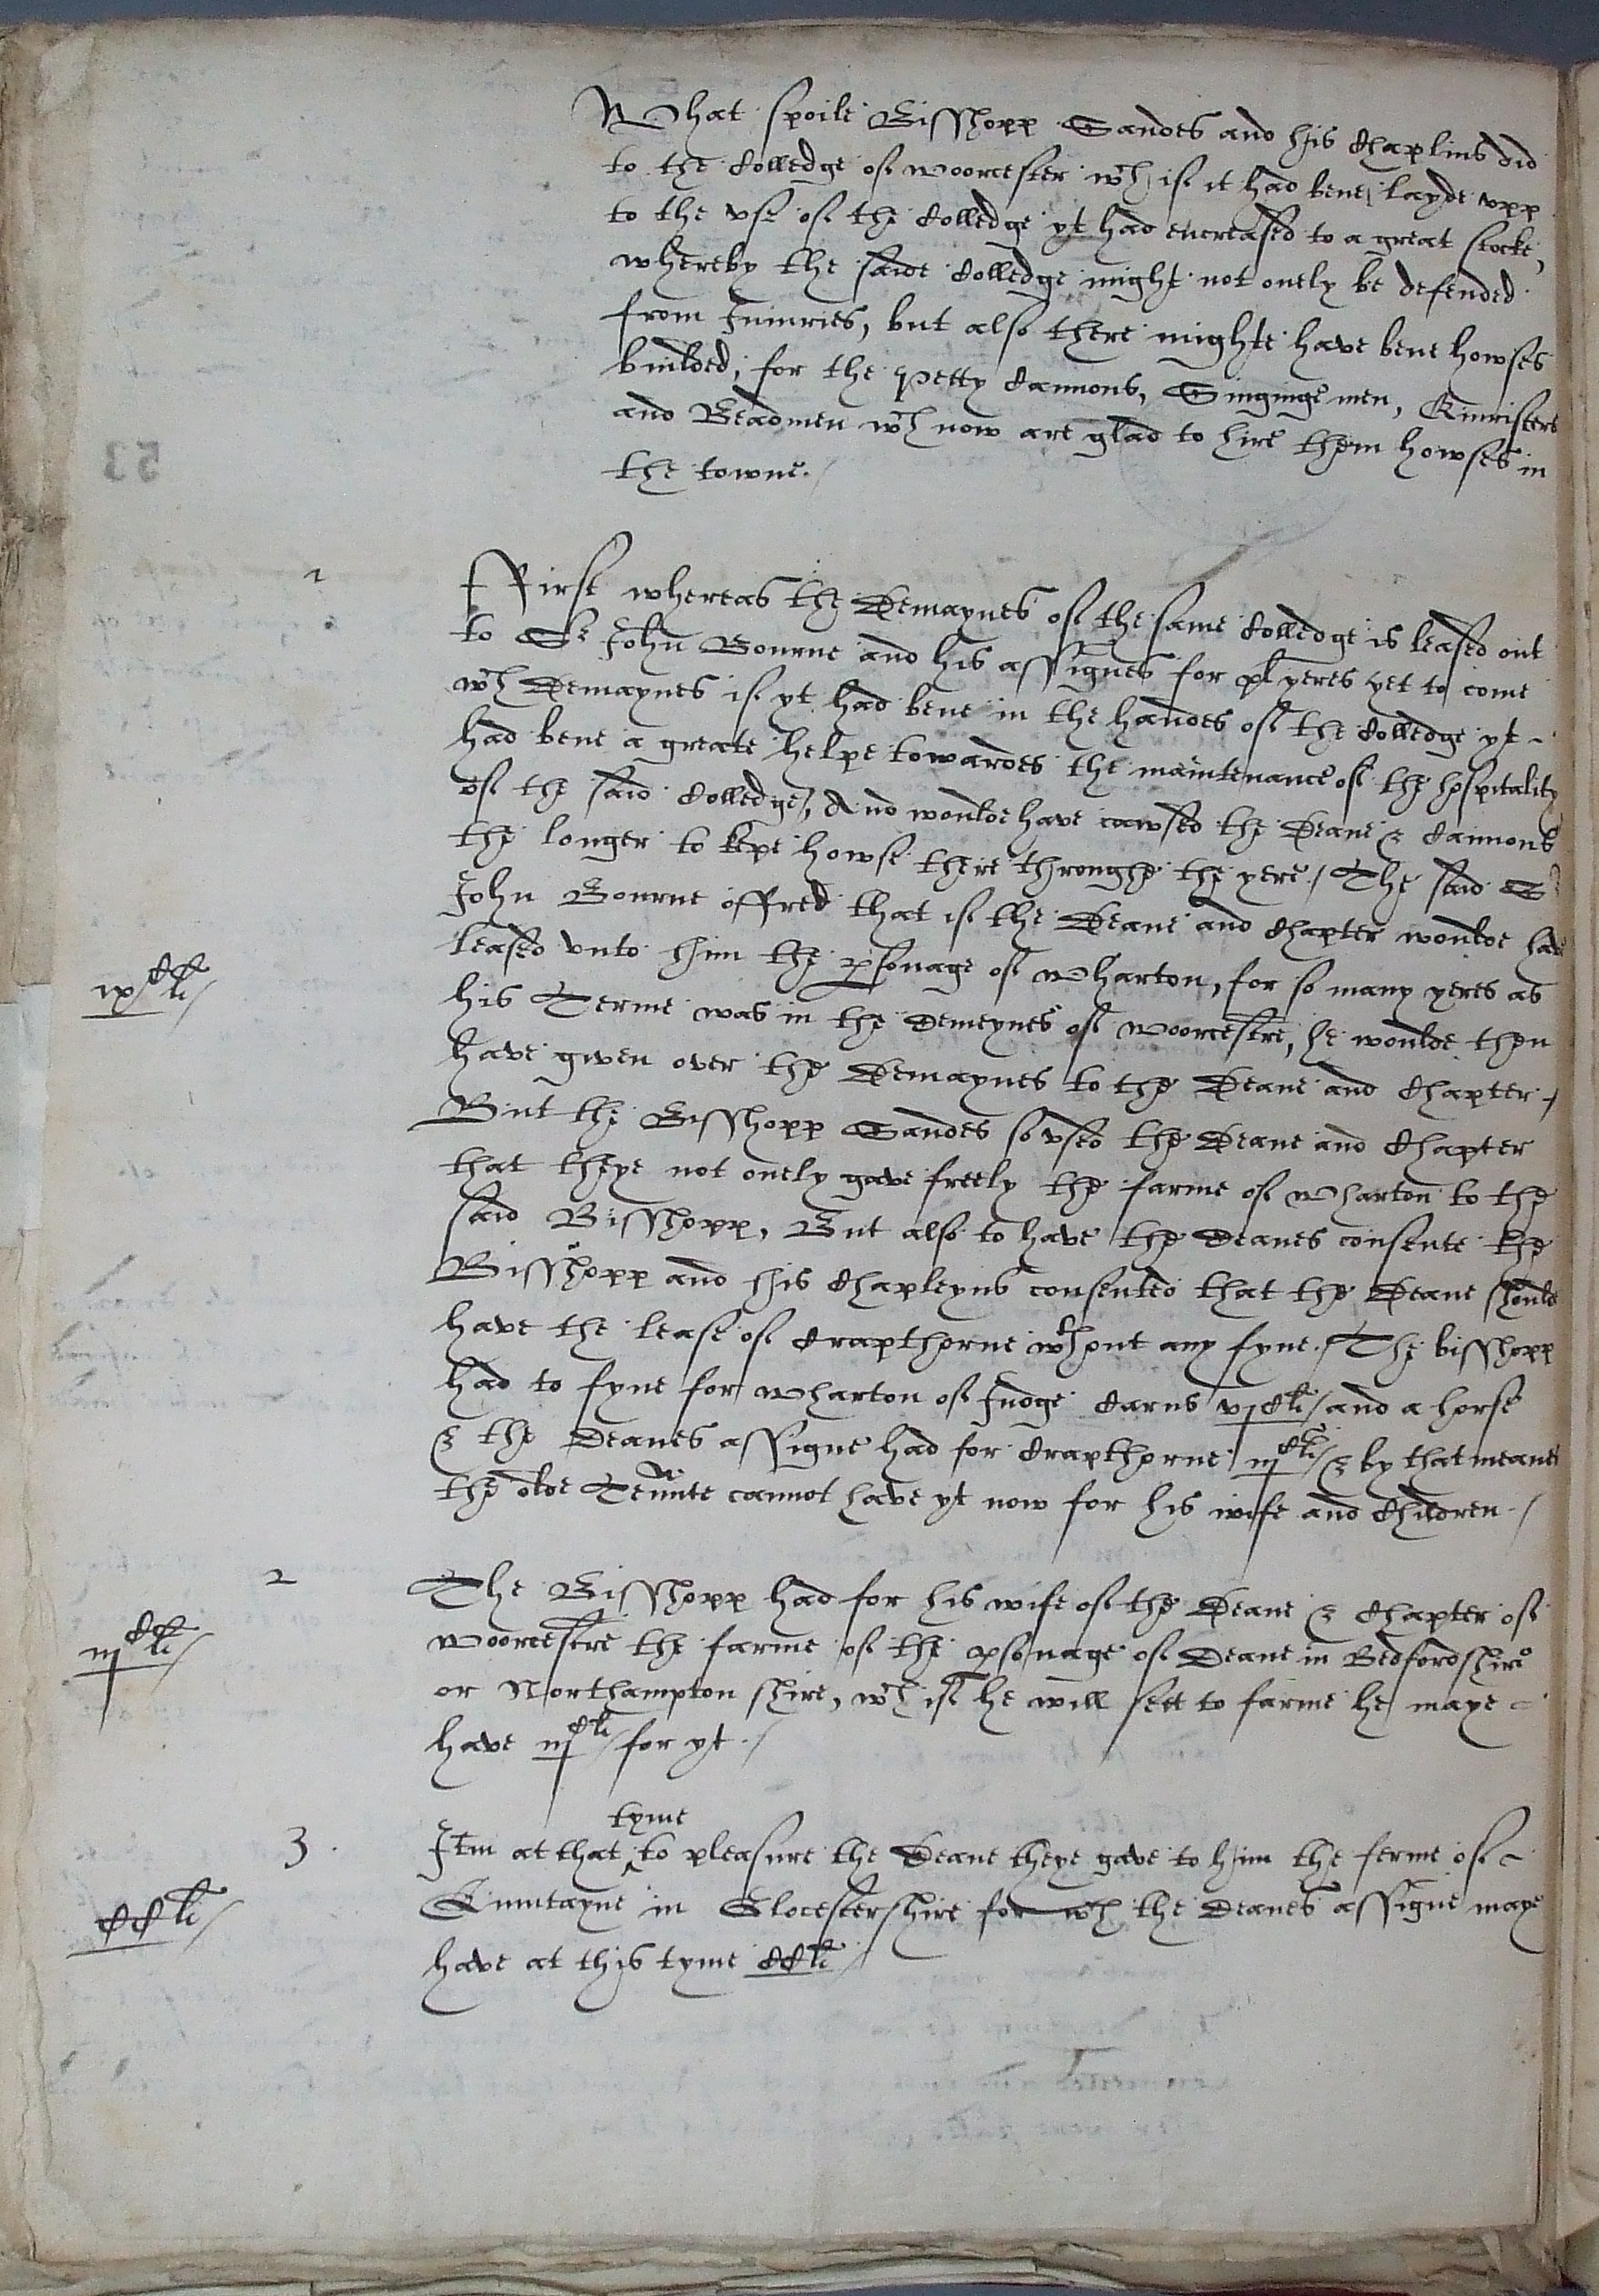 What spoile Bisshopp Sandes and his Chaplins did
to the Colledge of woorcester wch if it had bene layde upp
to the vse of the Colledge yt had encreased to a great stocke,
whereby the saide Colledge might not onely be defended
from Iniuries, but also there mighte have bene howses
builded, for the petty Cannons, Singinge men, Quiristers
and Beadmen wch now are glad to hire them howses in
the towne./
1
First whereas the Demaynes of the same Colledge is leased out
to Sr John Bourne and his assignes for xl yeres yet to come
wch Demaynes if yt had bene in the handes of the Colledge yt
had bene a greate helpe towardes the maintenance of the hospitality
of the said Colledge, And woulde have cawsed the Deane & Cannons
the longer to kepe howse there throughe the yere./ The said Sr
John Bourne offred that if the Deane and Chapter woulde have
leased vnto him the psonage of wharton, for so many yeres as
ixCli/
his Terme was in the Demeynes of woorcestre, he woulde then
have given over the Demaynes to the Deane and Chapter./
But the Bisshopp Sandes so vsed the Deane and Chapter
that theye not onely gave freely the farme of wharton to the
said Bisshopp, But also to have the Deanes consente the
Bisshopp and his Chapleyns consented that the Deane shoulde
have the lease of Crapthorne wthout any fyne./ The bisshopp
had to fyne for wharton of Judge Carus vjCli/ and a horse
& the Deanes assigne had for Crapthorne iijCli/ & by that meanes
the olde Tennte cannot have yt now for his wife and Children./
2
The Bisshopp had for his wife of the Deane & Chapter of
iijCli/
woorcestre the farme of the psonage of Deane in Bedfordshire
or Northampton shire, wch if he will sett to farme he maye
have iijCli/ for yt./
tyme
3.
Itm at that ^ to pleasure the Deane theye gave to him the ferme of
CCli/
Quintayne in Glocestershire for wch the Deanes assigne maye
have at this tyme CCli/
53